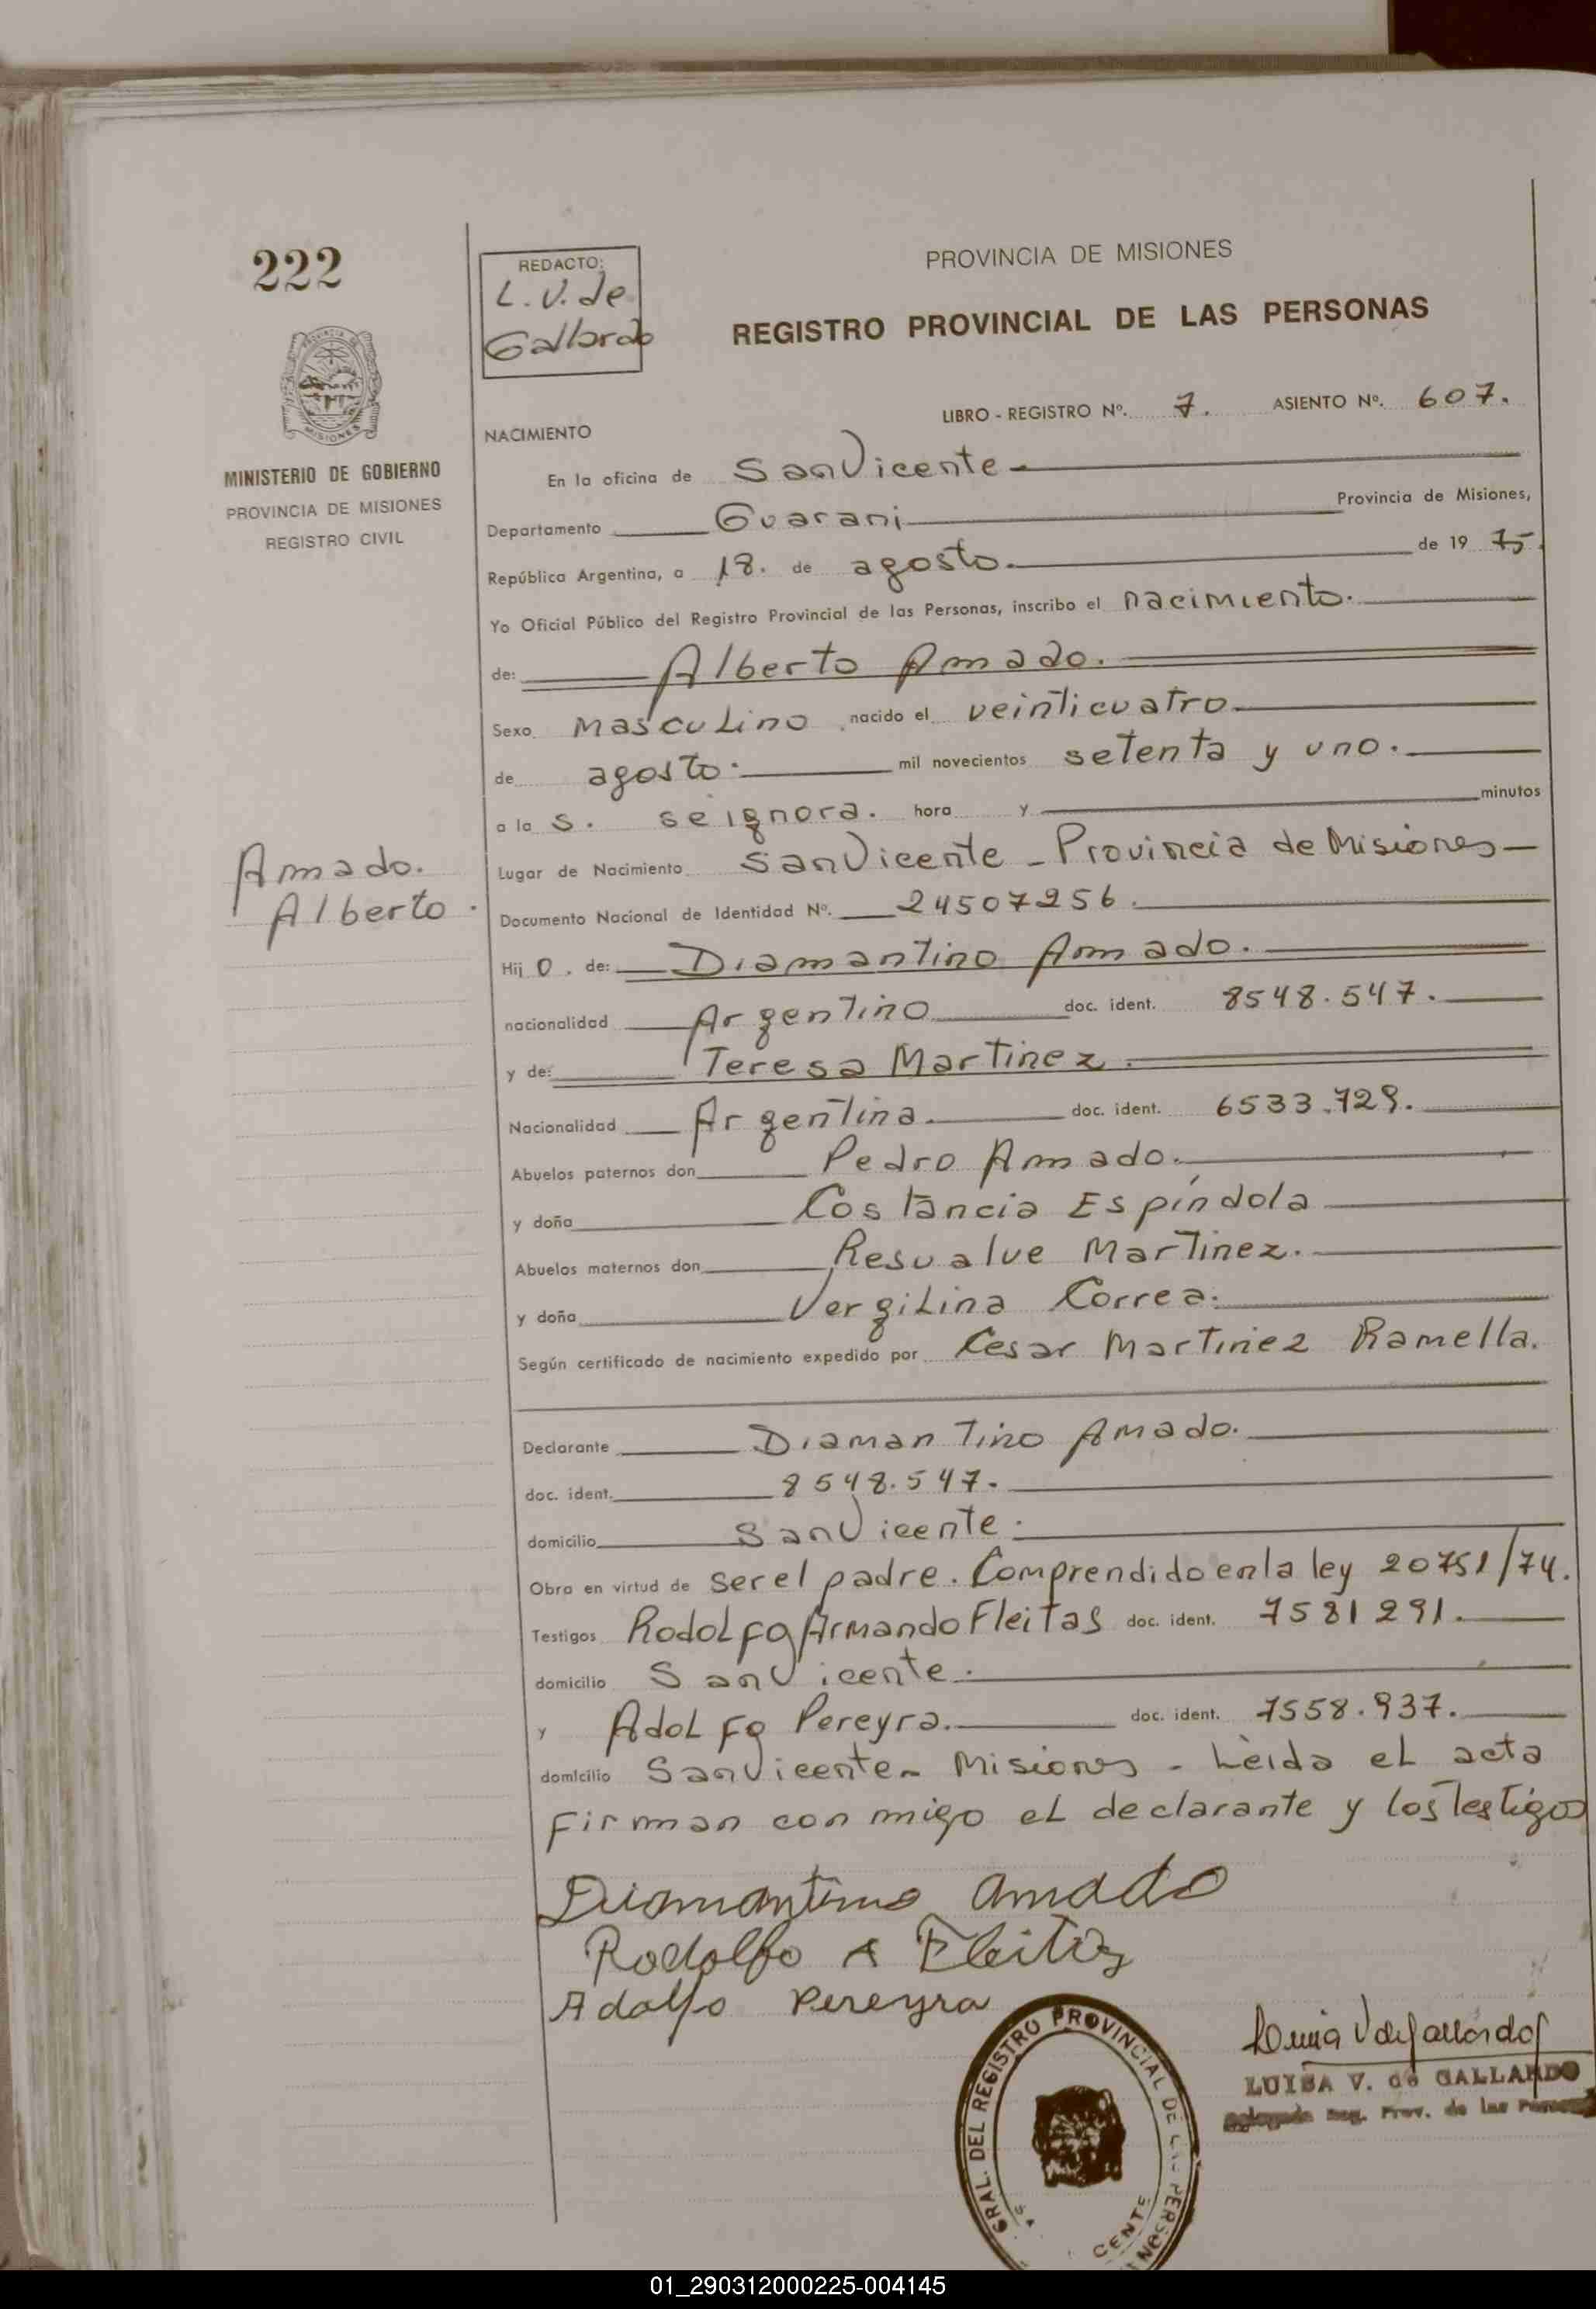 222
REDACTO:
L.V. de
Gallardo
PROVINCIA DE MISIONES
REGISTRO PROVINCIAL DE LAS PERSONAS
LIBRO - REGISTRO Nº. 7. ASIENTO Nº. 607.
MISIONES
MINISTERIO DE GOBIERNO
PROVINCIA DE MISIONES
REGISTRO CIVIL
NACIMIENTO
En la oficina de San Vicente
Departamento Guarani Provincia de Misiones,
República Argentina, a 18. de agosto. de 19 75.
Yo Oficial Público del Registro Provincial de las Personas, inscribo el nacimiento.
de: Alberto Amado.
Sexo Masculino nacido el veinticuatro
de agosto. mil novecientos setenta y uno.
a la s. se ignora. hora y minutos
Lugar de Nacimiento San Vicente - Provincia de Misiones
Amado.
Alberto.
Documento Nacional de Identidad Nº. 24507256.
Hij o. de: Diamantino Amado.
nacionalidad Argentino doc. ident. 8548.547.
y de: Teresa Martinez.
Nacionalidad Argentina. doc. ident. 6533.729.
Abuelos paternos don Pedro Amado.
y doña Costancia Espíndola
Abuelos maternos don Resualve Martinez.
y doña Vergilina Correa.
Según certificado de nacimiento expedido por Cesar Martinez Ramella.
Declarante Diamantino Amado.
doc. ident. 8548.547.
domicilio San Vicente.
Obra en virtud de ser el padre. Comprendido en la ley 20751/74.
Testigos Rodolfo Armando Fleitas doc. ident. 7581291.
domicilio San Vicente.
y Adolfo Pereyra. doc. ident. 7558.937.
domicilio San Vicente - Misiones - Leida el acta
firman con migo el declarante y los testigos
Diamantino Amado
Rodolfo A Fleitas
Adolfo Pereyra
GRAL. DEL REGISTRO PROVINCIAL DE LAS PERSON
CENTE
Luisa V de Gallardo
LUISA V. de GALLARDO
Delegada Reg. Prov. de las
01_290312000225-004145